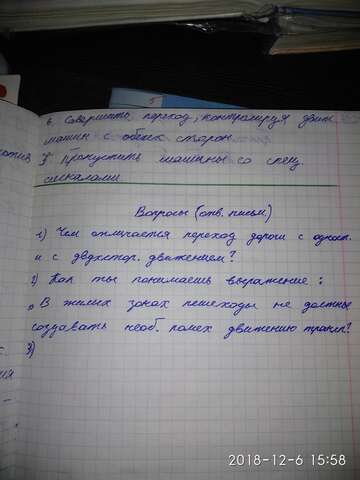 6. Совершать переход, контролируя движ.
машин с обеих сторон
7. Пропустить машины со спец.
сигналами
Вопросы (отв. письм.)
1) Чем отличается переход дороги с одност.
и с двухстор. движением?
2) Как ты понимаешь выражение:
„В жилых зонах пешеходы не должны
создавать необ. помех движению трансп."?
3)
2018-12-6 15:58